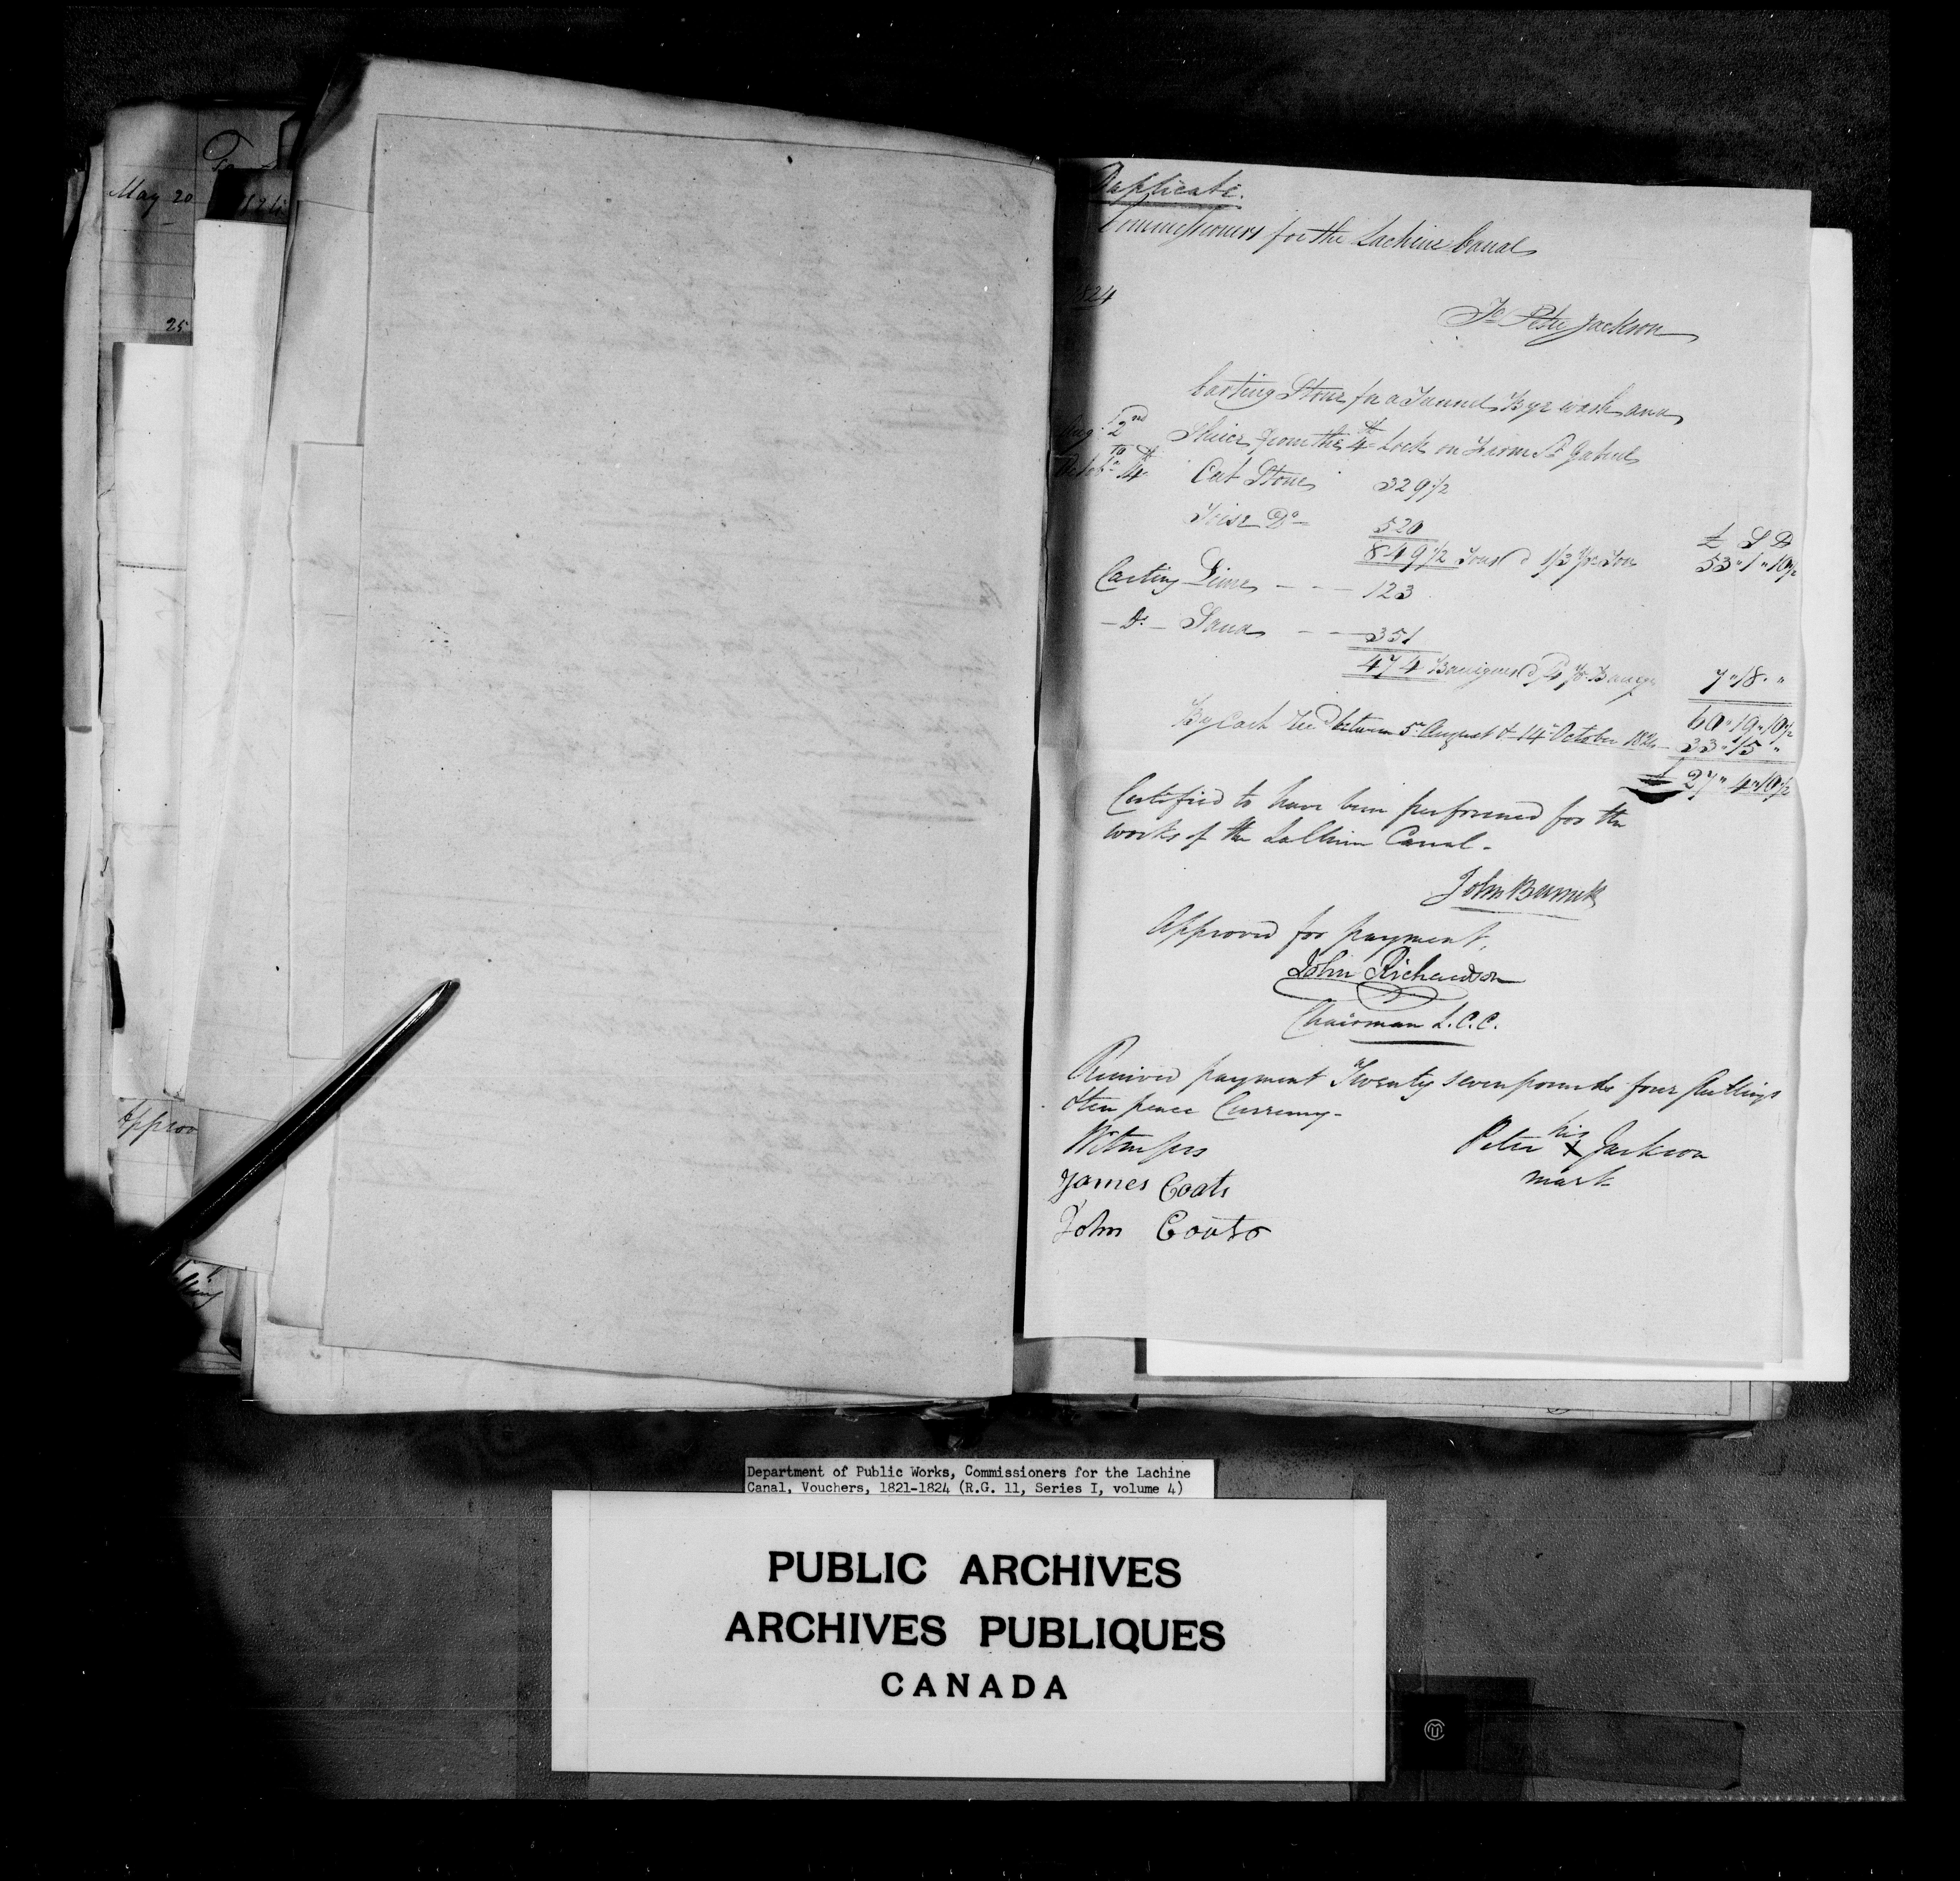 May 20
25
Approv
Duplicate.
Commissioners for the Lachine Canal
1824
To Peter Jackson
Carting Stone for a Tunnel, Bye wash and
Augt. 2nd Sluice from the 4th Lock on Farm St Gabriel
to
Octobr. 14th Cut Stone 329 1/2
Toise Do 520 £ S D
849 1/2 Tons @ 1/3 Pr Ton 53 " 1 " 10 1/2
Carting Lime 123
- Do - Sand 351
474 Bariques @ /4 Pr Barique 7 " 18 " "
60 " 19 " 10 1/2
By Cash Recd between 5th August & 14th October 1824 33 " 15 "
£ 27 " 4 " 10 1/2
Certified to have been performed for the
works of the LaChine Canal -
John Burnett
Approved for payment.
John Richardson
Chairman L.C.C.
Received payment Twenty seven pounds four shillings
& ten pence Currency -
Witnesses Peter his X Jackson
mark
James Coats
John Coats
Department of Public Works, Commissioners for the Lachine
Canal, Vouchers, 1821-1824 (R.G. 11, Series I, volume 4)
PUBLIC ARCHIVES
ARCHIVES PUBLIQUES
CANADA